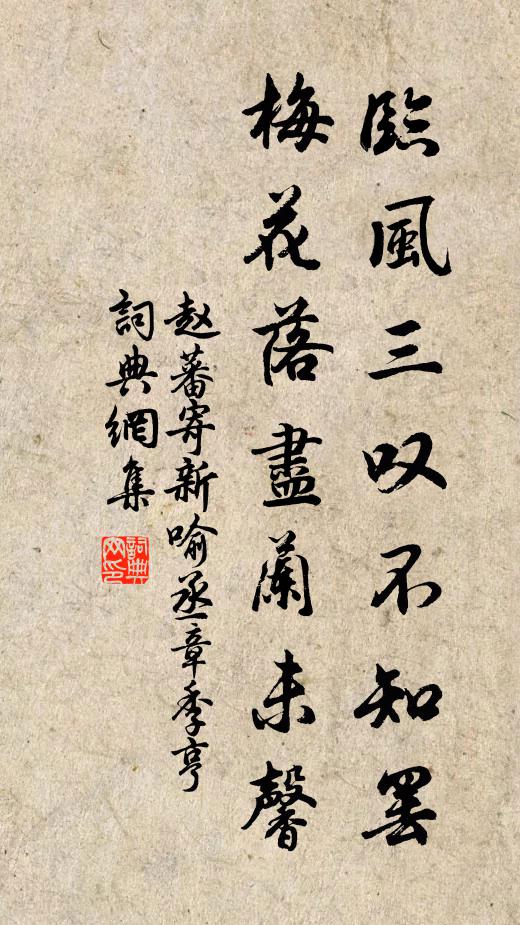 臨風三叹不知罢
梅花落盡蘭未馨
赵蕃寄新喻丞章季亨
詞典網集
詞典网印